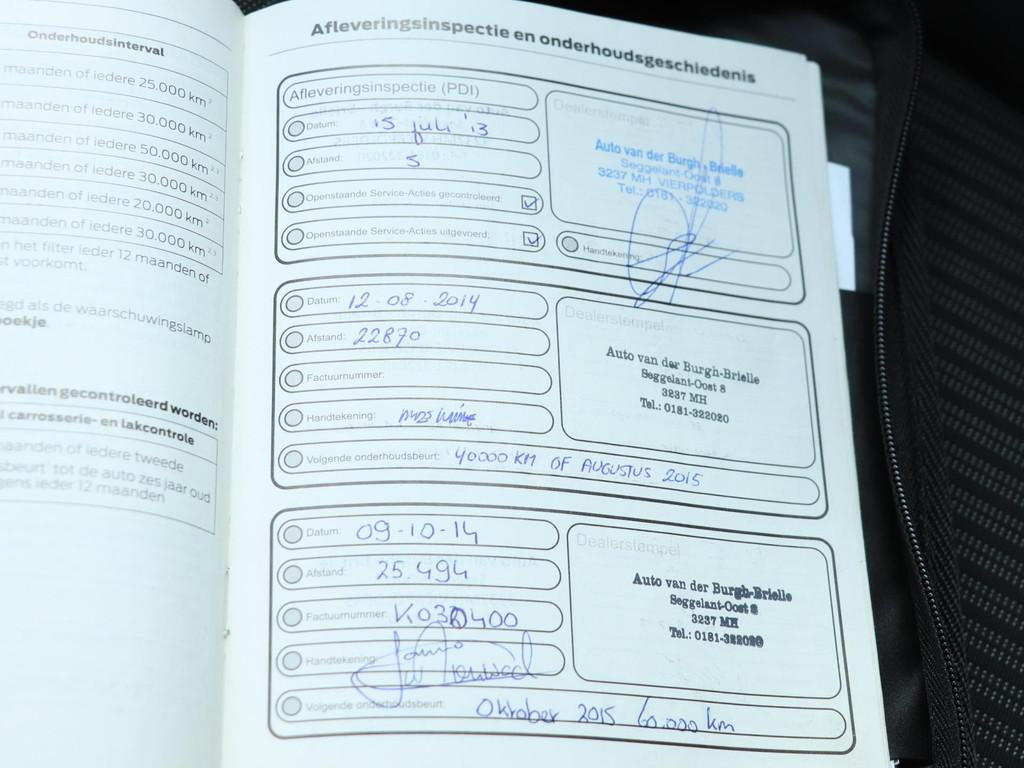 Onderhoudsinterval
maanden of iedere 25.000 km ²
maanden of iedere 30.000 km ²
maanden of iedere 50.000 km ²,³
maanden of iedere 30.000 km ²,³
maanden of iedere 20.000 km ²
maanden of iedere 30.000 km ²,³
en het filter ieder 12 maanden of
st voorkomt.
egd als de waarschuwingslamp
oekje.
rvallen gecontroleerd worden:
l carrosserie- en lakcontrole
maanden of iedere tweede
sbeurt tot de auto zes jaar oud
gens ieder 12 maanden
Afleveringsinspectie en onderhoudsgeschiedenis
Afleveringsinspectie (PDI)
Datum: 15 juli '13
Afstand: 5
Openstaande Service-Acties gecontroleerd:
Openstaande Service-Acties uitgevoerd:
Dealerstempel
Auto van der Burgh-Brielle
Seggelant-Oost 8
3237 MH VIERPOLDERS
Tel.: 0181 - 322020
Handtekening:
Datum: 12-08-2014
Afstand: 22870
Factuurnummer:
Handtekening:
Dealerstempel
Auto van der Burgh-Brielle
Seggelant-Oost 8
3237 MH
Tel.: 0181-322020
Volgende onderhoudsbeurt: 40000 KM OF AUGUSTUS 2015
Datum: 09-10-14
Afstand: 25.494
Factuurnummer:
Handtekening:
Dealerstempel
Auto van der Burgh-Brielle
Seggelant-Oost 8
3237 MH
Tel.: 0181-322020
Volgende onderhoudsbeurt: Oktober 2015 60.000 km